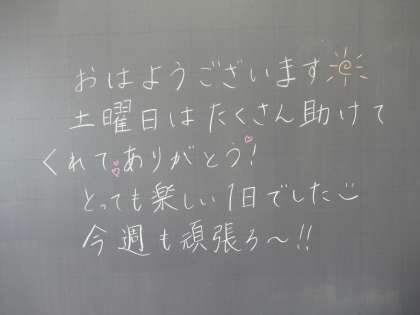 おはようございます
土曜日はたくさん助けて
くれてありがとう!
とっても楽しい1日でした
今週も頑張ろ〜!!